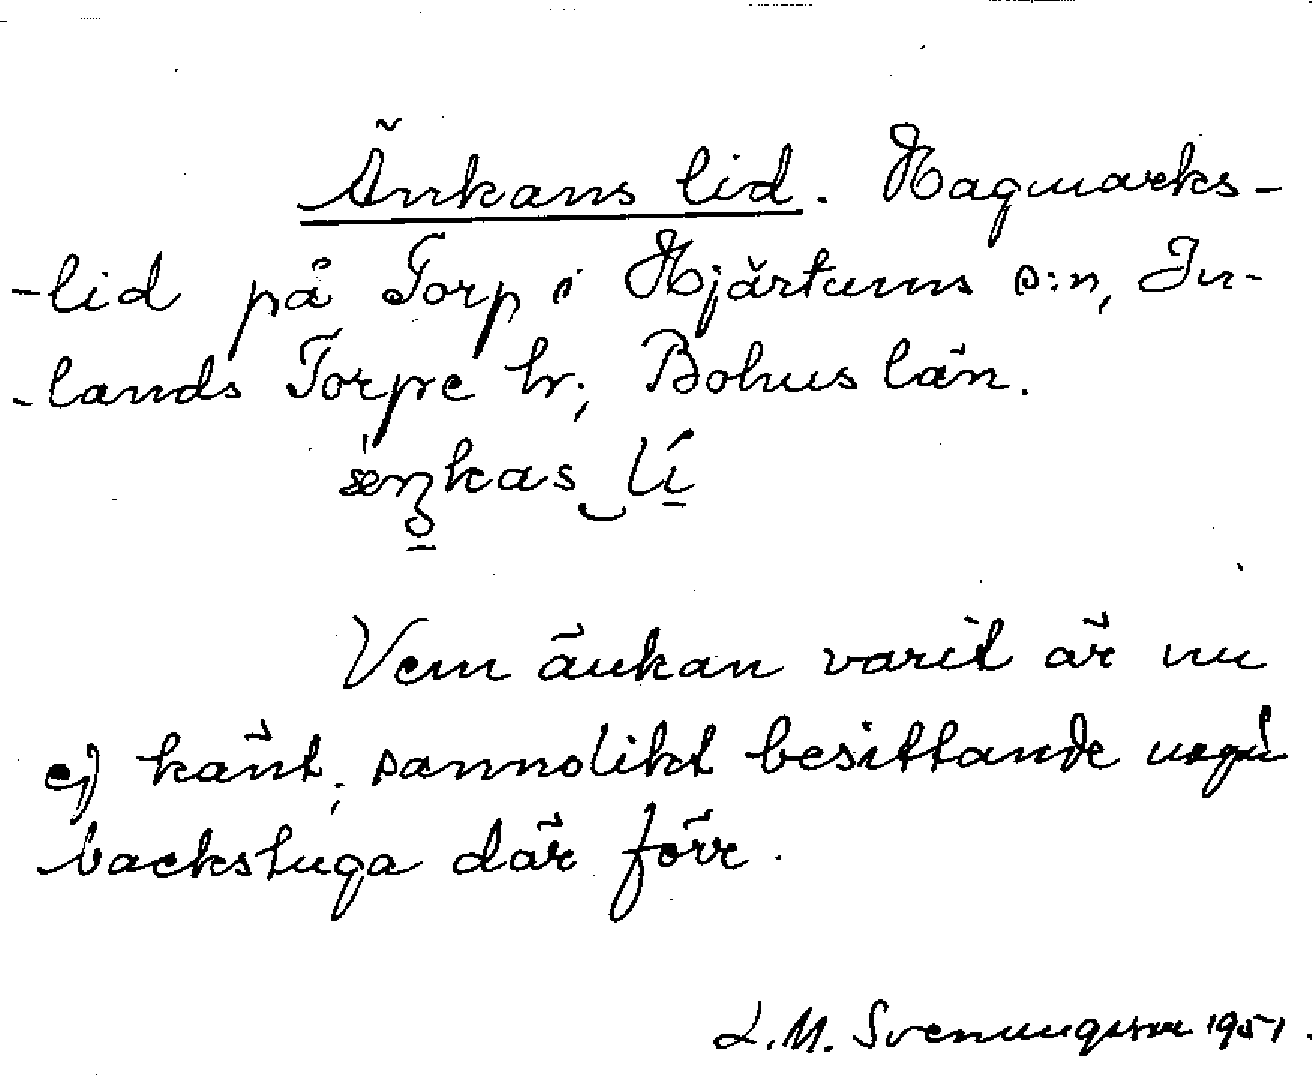 Änkans lid. Hagmarks-
-lid på Torp i Hjärtums s:n, In-
-lands Torpe hr; Bohus län.
Vem änkan varit är nu
ej känt, sannolikt besittande någå
backstuga där förr.
L.M. Svenungsson 1951.